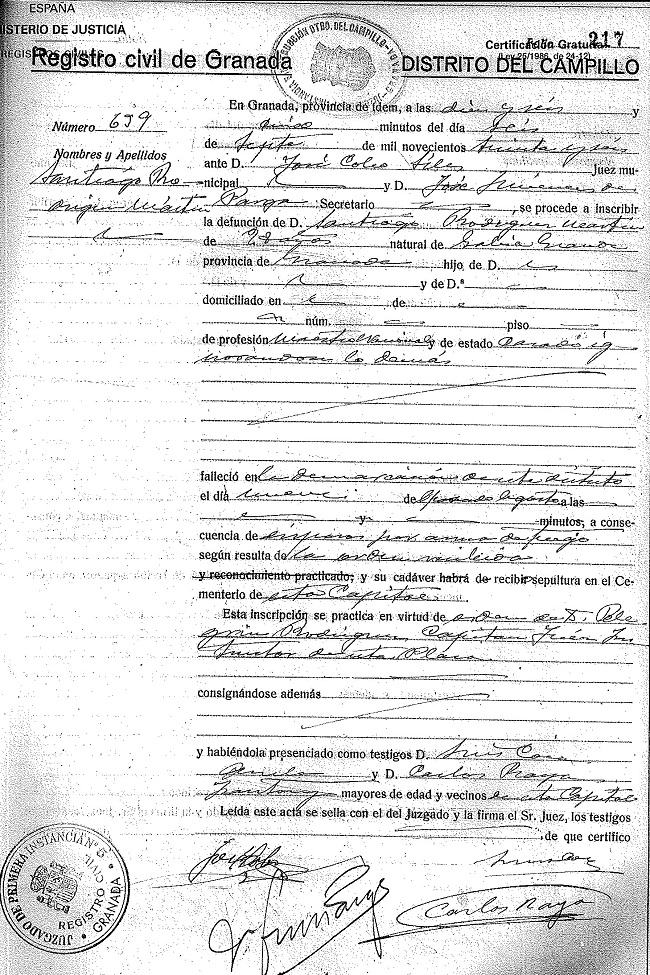 ESPAÑA
MINISTERIO DE JUSTICIA
REGISTROS CIVILES
Certificación Gratuita
Folio 217
(Ley 25/1986, de 24-12)
Registro civil de Granada
DISTRITO DEL CAMPILLO
Número 659
Nombres y Apellidos
Santiago Ro-
driguez Martin
En Granada, provincia de idem, a las diez y seis y
cinco minutos del día seis
de Septbre de mil novecientos treinta y seis
ante D. José Juez mu-
nicipal y D. José Jimenez de
Parga Secretario , se procede a inscribir
la defunción de D. Santiago Rodriguez Martin
de años natural de Gabia Grande
provincia de Granada hijo de D.
y de D.ª
domiciliado en de
núm. piso
de profesión Maestro Nacional y de estado casado ig
norandose lo demás
falleció en la demarcación de este distrito
el día nueve de pasado Agosto a las
y minutos, a conse-
cuencia de disparos por arma de fuego
según resulta de la orden recibida
y reconocimiento practicado; y su cadáver habrá de recibir sepultura en el Ce-
menterio de esta Capital
Esta inscripción se practica en virtud de orden de D. Pele
grin Rodriguez, Capitan Juez Ins
tructor de esta Plaza
consignándose además
y habiéndola presenciado como testigos D. Luis
y D. Carlos Raya
mayores de edad y vecinos de esta Capital
Leída este acta se sella con el del Juzgado y la firma el Sr. Juez, los testigos
de que certifico
Carlos Raya
JUZGADO DE PRIMERA INSTANCIA Nº 6
REGISTRO CIVIL
GRANADA